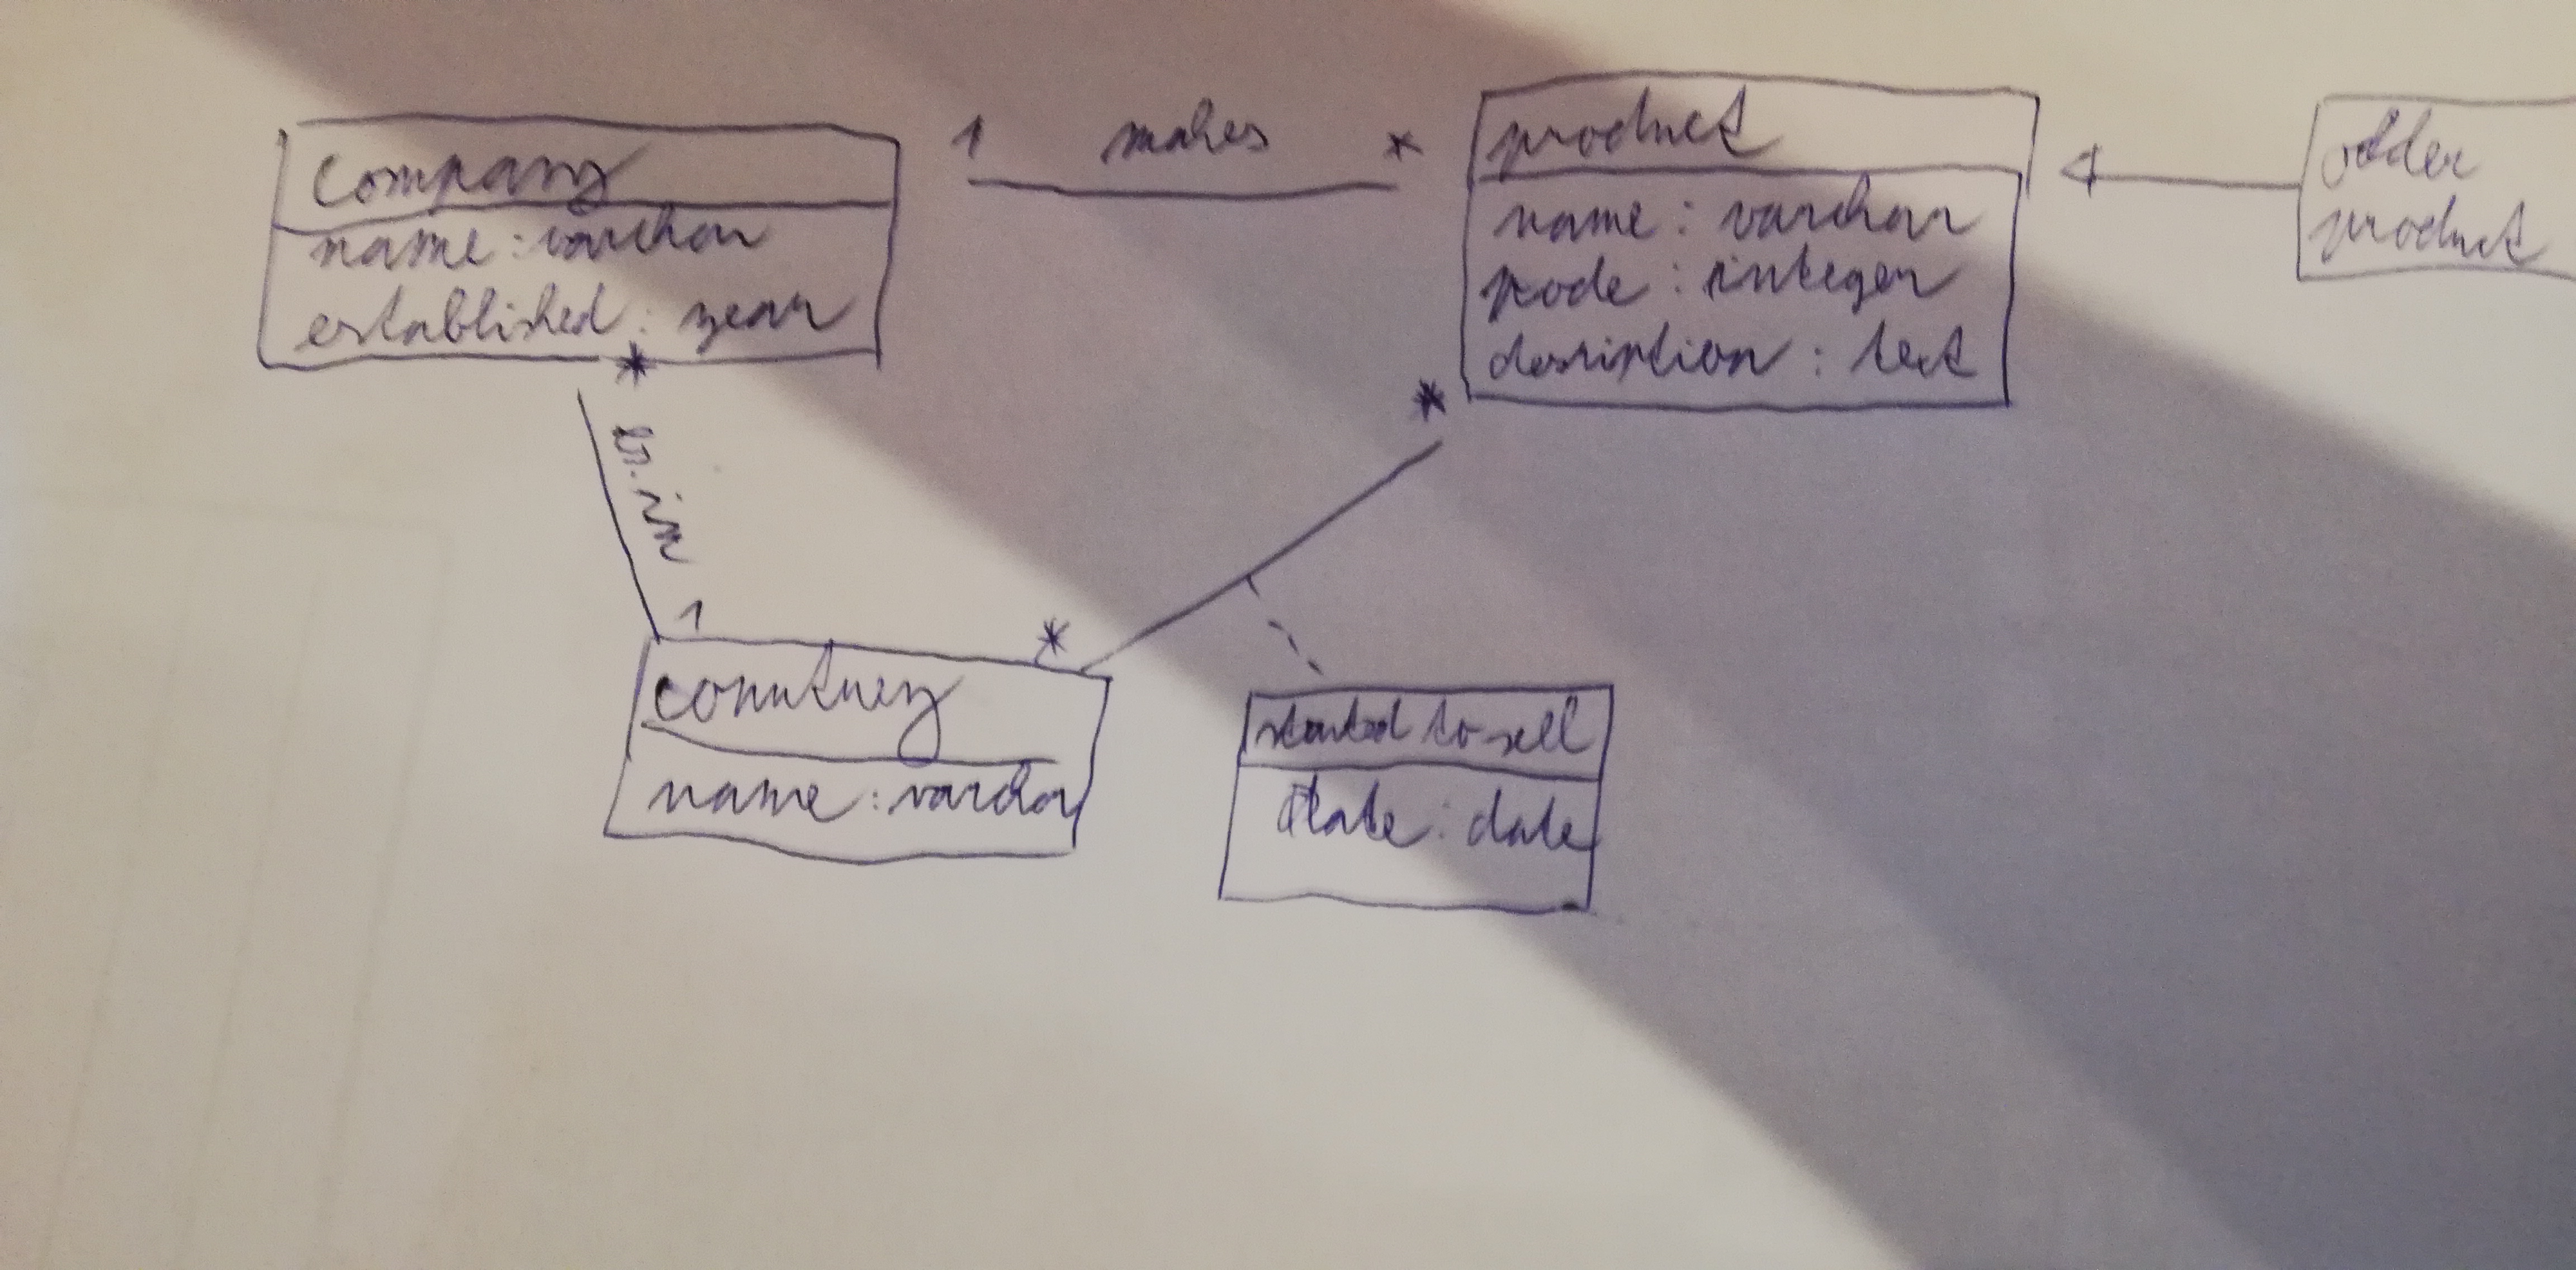 company
name : varchar
established : year
1 makes *
product
name : varchar
pcode : integer
desription : text
older
product
*
in
1
*
*
country
name : varchar
started to sell
date : date